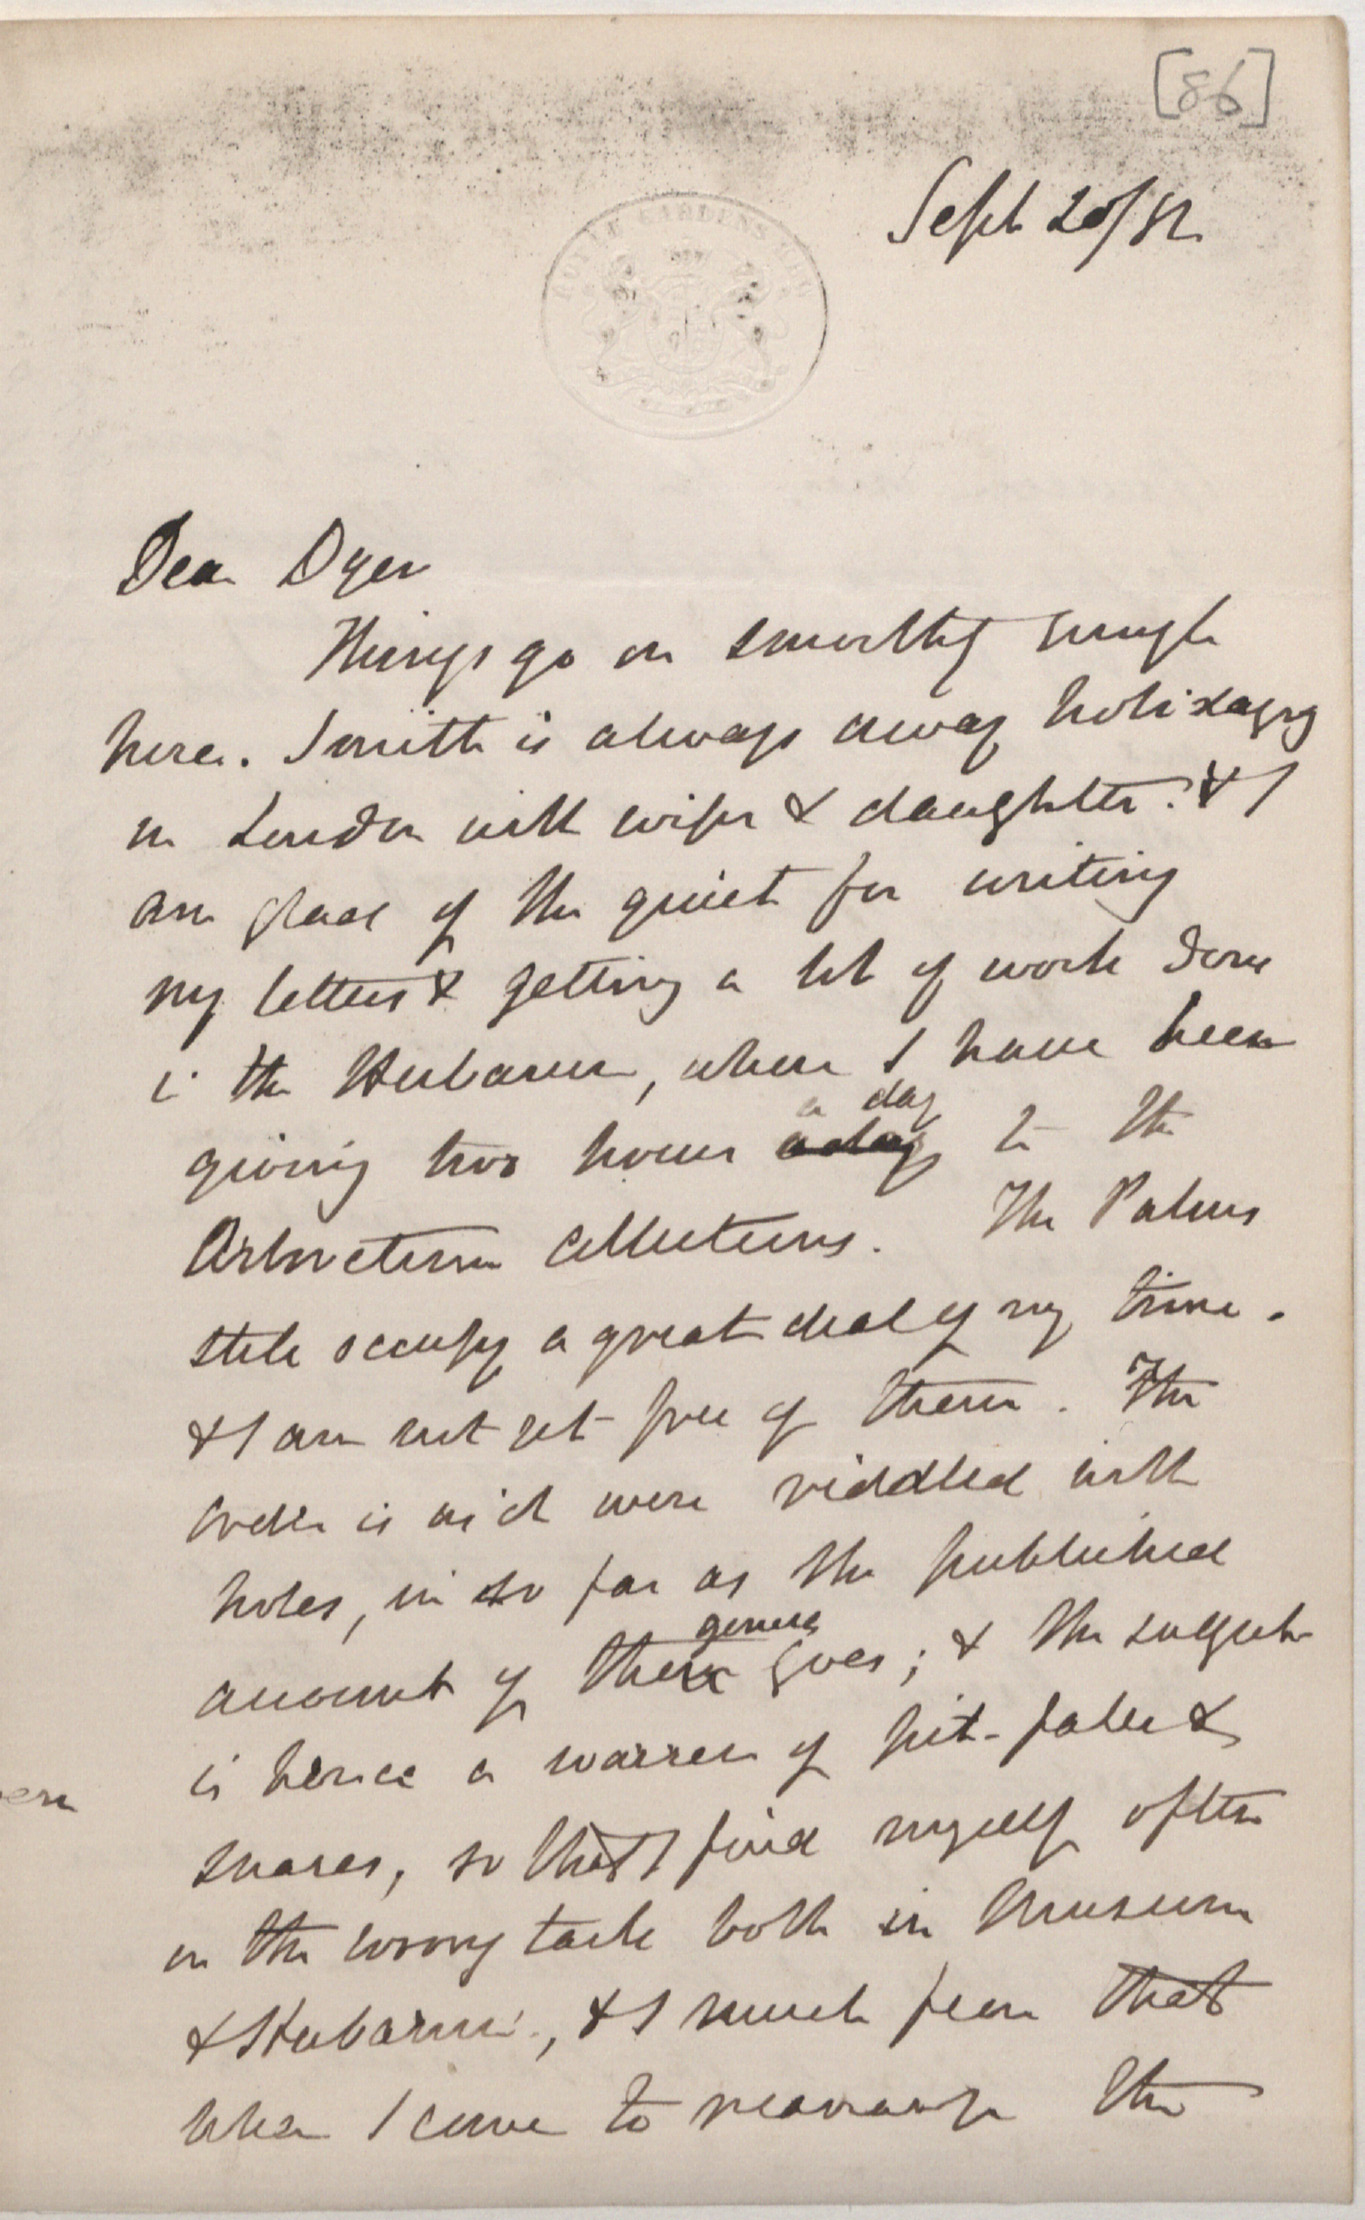 [86]
Sept 20/82
ROYAL GARDENS KEW
Dear Dyer
Things go on smoothly enough
here. Smith is always away holidayg
in London with wife & daughter. & I
am glad of the quiet for writing
my letters & getting a lot of work done
in the Herbarium, where I have been
giving two hours a day a day to the
Arboretum Collections. The Palms
still occupy a great deal of my time.
& I am not yet free of them. The
order is as it were riddled with
holes, in so far as the published
amount of genera goes; & the subject
is hence a warren of pit-falls &
snares, so that I find myself often
on the wrong tack both in Museum
& Herbarium, & I much fear that
when I come to rearrange the